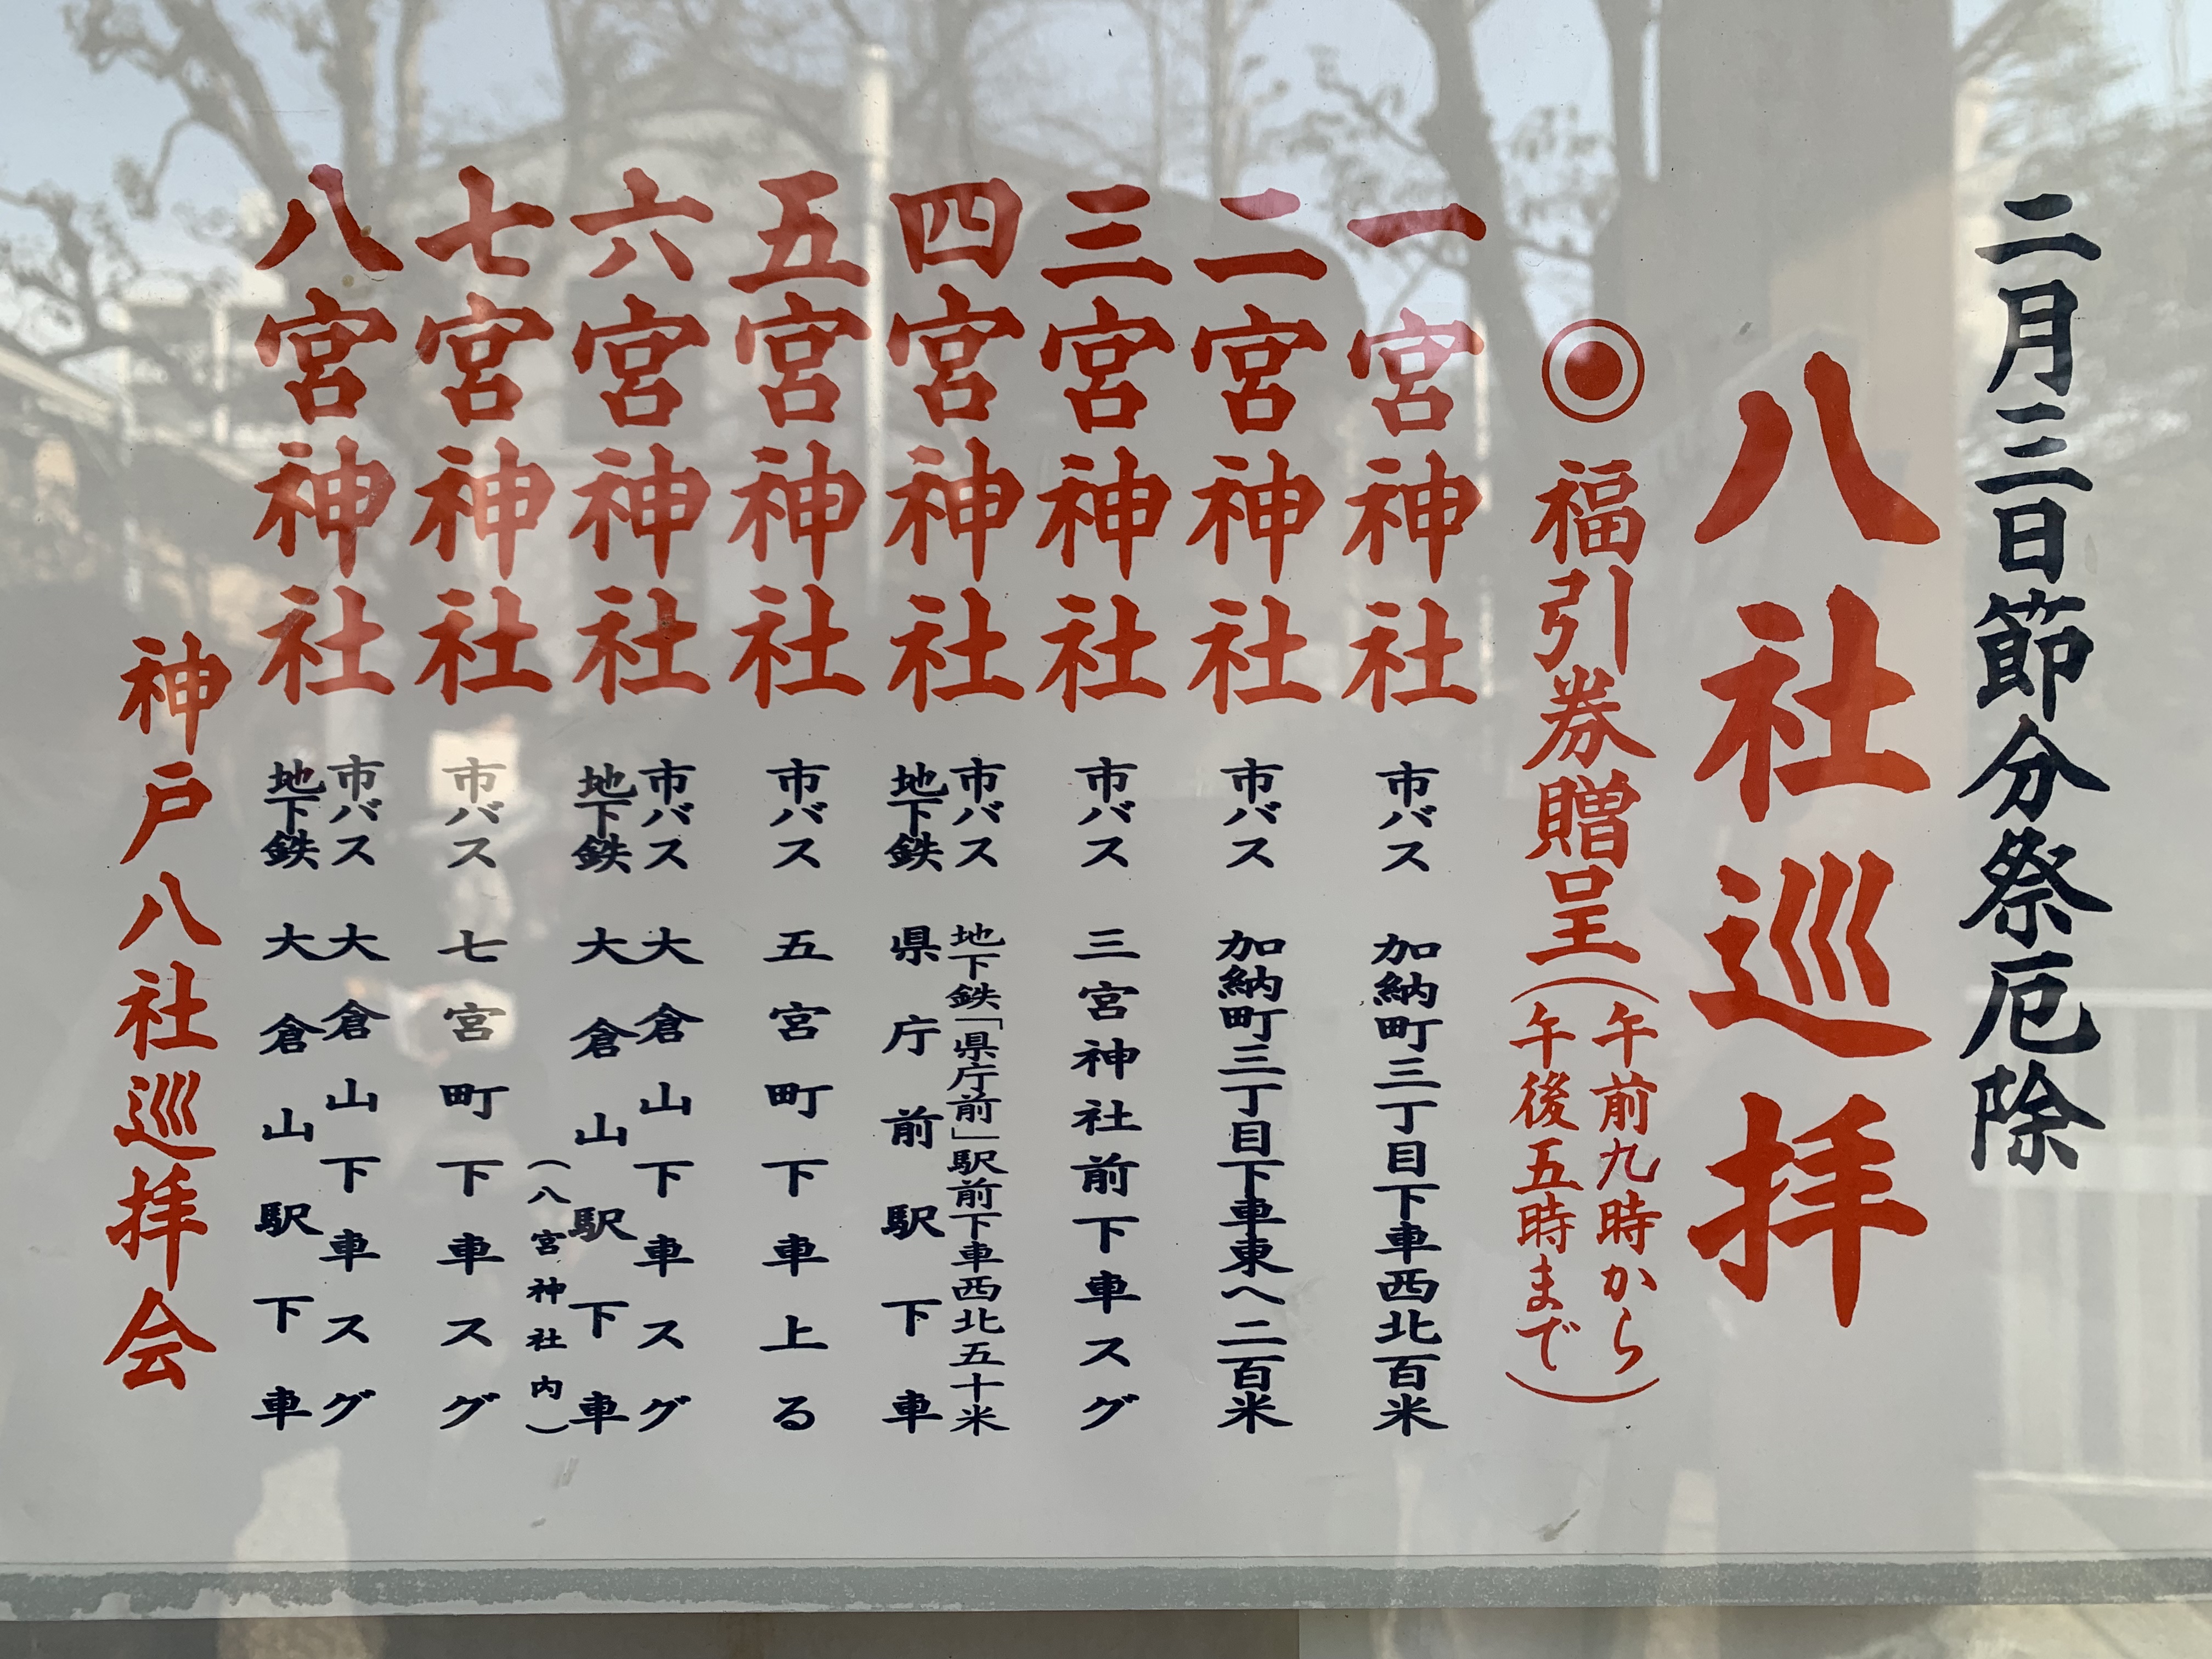 二月三日節分祭厄除
八社巡拝
◉福引券贈呈(午前九時から
午後五時まで)
一宮神社 市バス 加納町三丁目下車西北百米
二宮神社 市バス 加納町三丁目下車東へ二百米
三宮神社 市バス 三宮神社前下車スグ
四宮神社 市バス 地下鉄「県庁前」駅前下車西北五十米
地下鉄 県庁前駅下車
五宮神社 市バス 五宮町下車上る
六宮神社 市バス 大倉山下車スグ
地下鉄 大倉山駅下車
(八宮神社内)
七宮神社 市バス 七宮町下車スグ
八宮神社 市バス 大倉山下車スグ
地下鉄 大倉山駅下車
神戸八社巡拝会